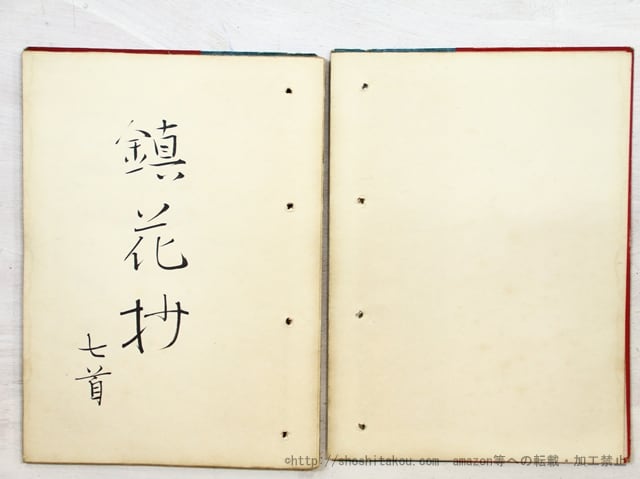 鎮花抄
七首
©http://shoshitakou.com amazon等への転載・加工禁止